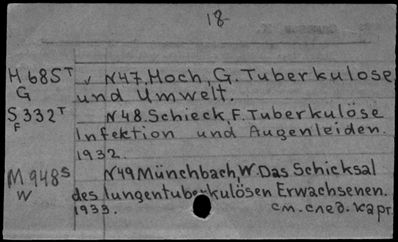 18
H685T √ N47. Hoch, G. Tuberkulose
G und Umwelt.
S332T N48. Schieck, F. Tuberkulöse
F Infektion und Augenleiden.
1932.
M948S N49 Münchbach, W. Das Schicksal
W des lungentuberkulösen Erwachsenen.
1933. см. след. карт.